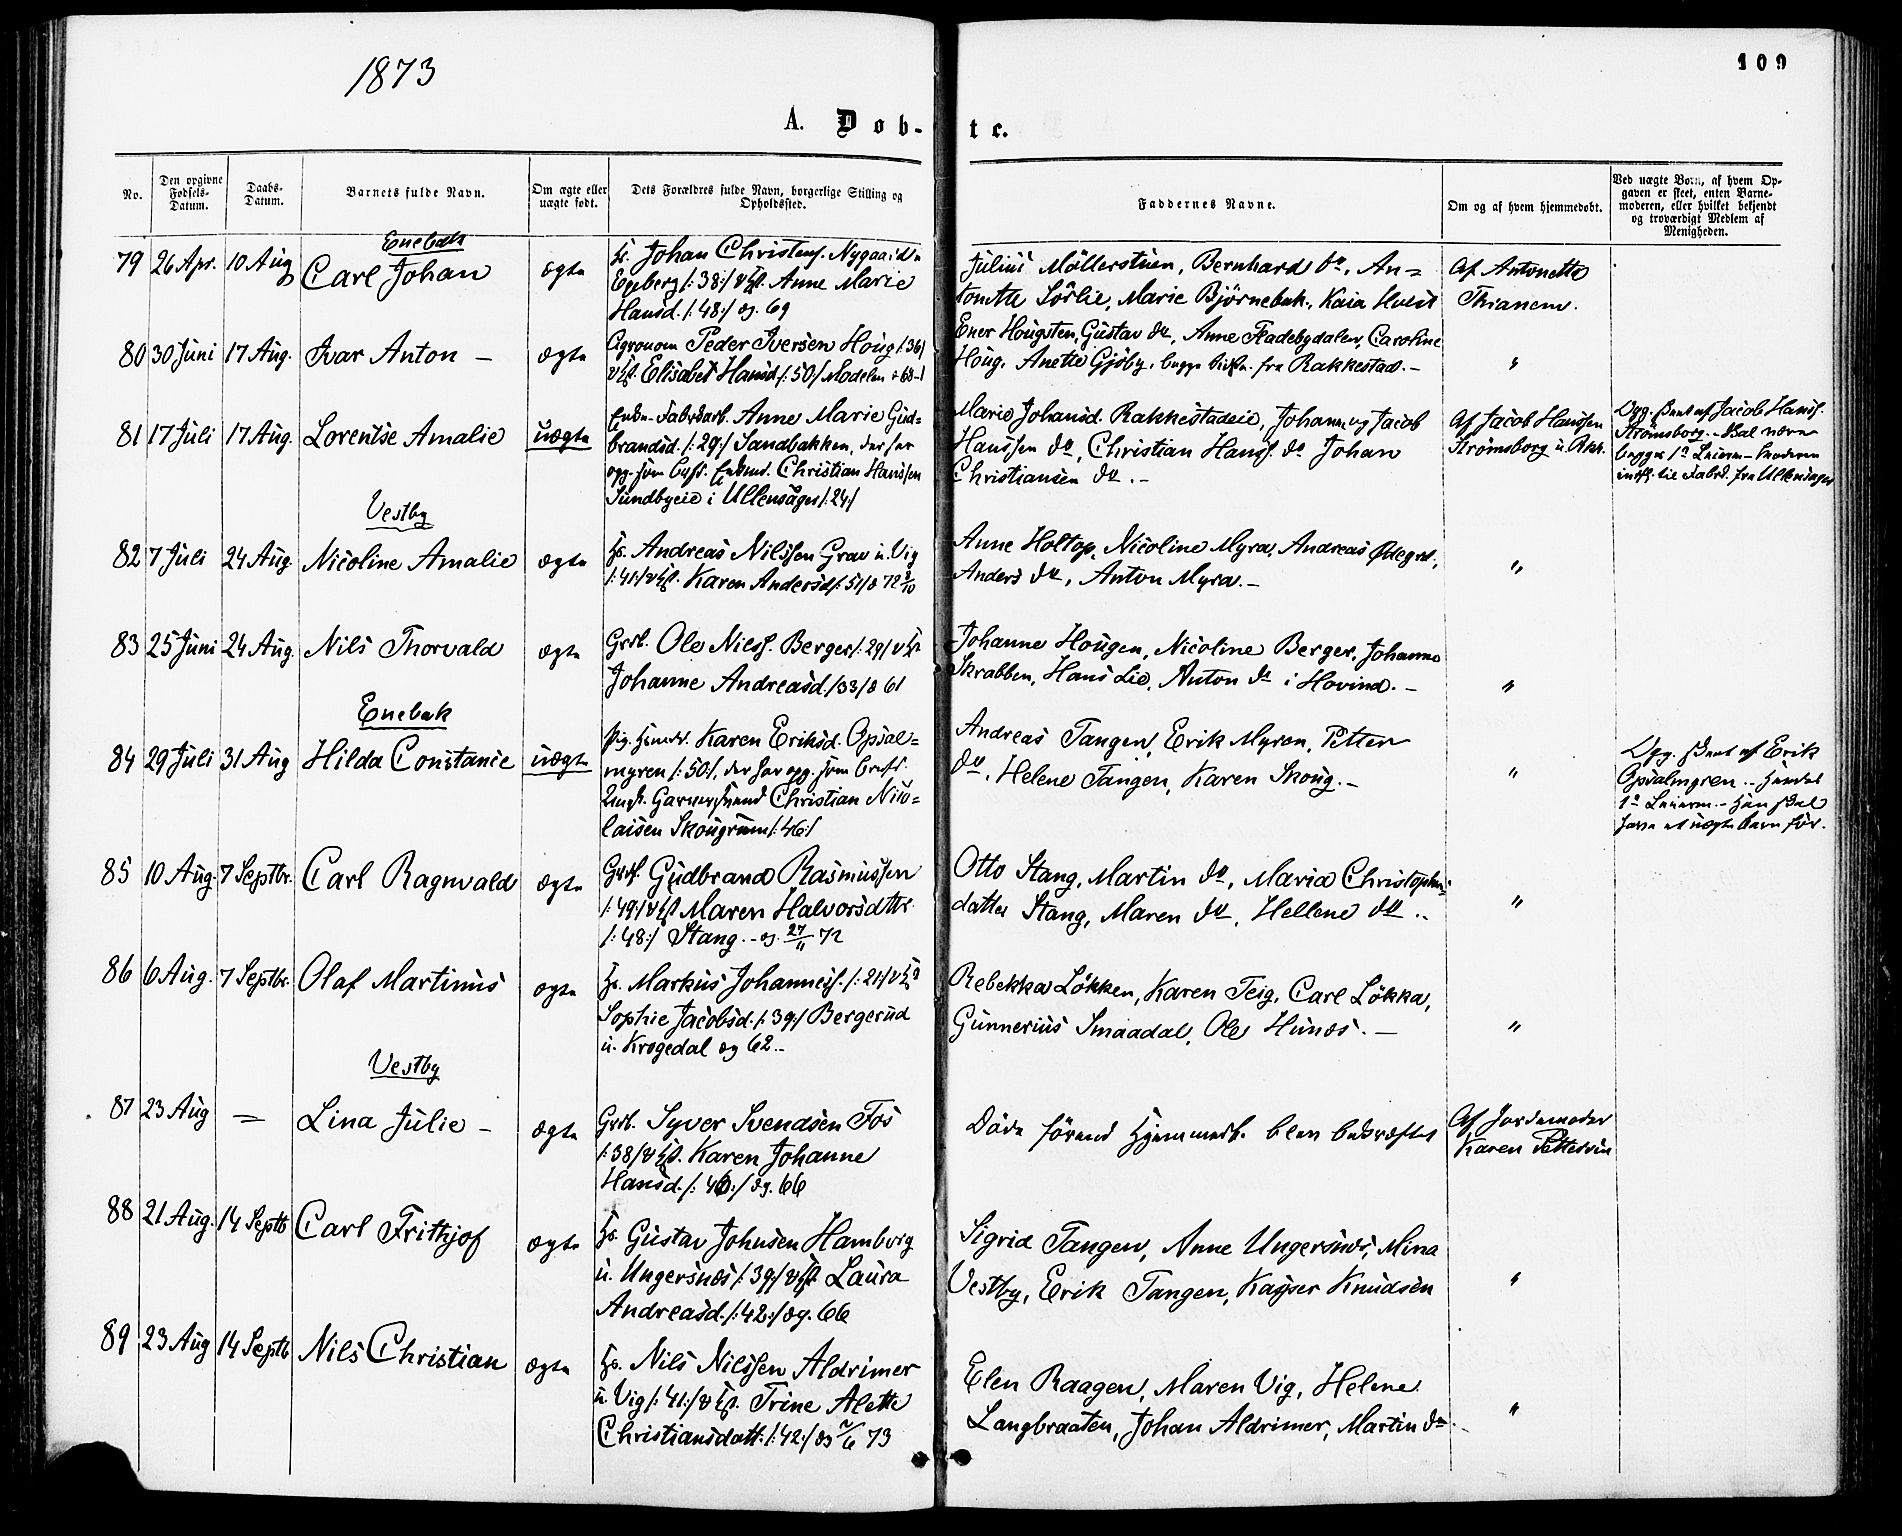 1873
109
A. Døb-
te.
No.
Den opgivne Fødsels-Datum.
Daabs-Datum.
Barnets fulde Navn.
Om ægte eller uægte født.
Dets Forældres fulde Navn, borgerlige Stilling og Opholdssted.
Faddernes Navne.
Om og af hvem hjemmedøbt.
Ved uægte Børn, af hvem Opgaven er skeet, enten Barnemoderen, eller hvilket bekjendt og troværdigt Medlem af Menigheden.
Enebak
79 26 Apr. 10 Aug Carl Johan ægte
Johan Christens. Nygaard u
Egeberg /:38:/ Anne Marie
Hansd. /:48:/ og. 69
Julius Möllerstuen, Bernhard do, An=
tonette Sörlie, Marie Björnebek, Kaia
Af Antonette
80 30 Juni 17 Aug. Ivar Anton – ægte
Agronom Peder Iversen Houg /36/
Elisabet Hansd. /:50:/ 68
Ener Hougsten, Gustav do, Anne Fladebydalen, Caroline
Houg, Anette Gjöby, begge fra Rakkestad. –
"
81 17 Juli 17 Aug. Lorentse Amalie uægte
Anne Marie Gud=
brandsd. /:29:/ Sandbakken, der har
opg. som Christian Hanssen
Sundbyeie i Ullensager /:24:/
Marie Johansd. Rakkestadeie, Johan og Jacob
Hanssen do, Christian Hanss. do Johan
Christiansen do. –
Af Jacob Hanssen
Strömsborg u. Rkk.
Opg. skeet af Jacob Hanss.
Strömsborg. – Skal være
begges 1ste Leierm. – Moderen
indfl. til Fabrd. fra Ullensager
Vestby
82 7 Juli 24 Aug. Nicoline Amalie ægte
Andreas Nilssen Grav u. Vig
/:41:/ Karen Andersd. /:51/
Anne Holtop, Nicoline Myra, Andreas Ödegrd,
Anders do, Anton Myra. –
"
83 25 Juni 24 Aug. Nils Thorvald ægte
Grdb. Ole Nilss. Berger /:29/
Johanne Andreasd. /33/ 61
Johanne Hougen, Nicoline Berger, Johanne
Skrabben, Hans Lie, Anton do i Hovind. –
"
Enebak
84 29 Juli 31 Aug Hilda Constance uægte
Pig. Karen Eriksd. Opsal=
myren /:50:/, der har opg. som
Ungk. Christian Nico=
laisen Skougrum /:46:/
Andreas Tangen, Erik Myren, Petter
do, Helene Tangen, Karen Skoug. –
"
Opg. skeet af Erik
Opsalmyren. – Hendes
1ste Leierm. – Han skal
have et uægte Barn før.
85 10 Aug. 7 Septbr. Carl Ragnvald ægte
Gudbrand Rasmussen
/:49:/ Maren Halvorsdttr.
/:48:/ Stang. – og. 27/11 72
Otto Stang, Martin do, Maria Christophers
datter Stang, Maren do, Hellene do. –
"
86 6 Aug. 7 Septbr. Olaf Martinus ægte
Markus Johanness. /:21/
Sophie Jacobsd. /:39:/ Bergerud
u. Krogedal og 62. –
Rebekka Lökken, Karen Teig, Carl Lökka,
Gunnerius Smaadal, Ole Hunæs. –
"
Vestby
87 23 Aug = Lina Julie – ægte
Grdb. Syver Svendsen Fos
/:38/ Karen Johanne
Hansd. /:46:/ og. 66
Döde förend Hjemmedb. blev bekræftet
Af Jordemoder
Karen Pettersen
88 21 Aug. 14 Septb Carl Frithjof ægte
Gustav Johnsen Hamborg
u. Ungersnæs /:39:/ Laura
Andreasd. /:42:/ og. 66
Sigrid Tangen, Anne Ungersnæs, Mina
Vestby, Erik Tangen, Kayser Knudsen
"
89 23 Aug 14 Septb Nils Christian ægte
Nils Nilssen Aldrimer
u. Vig /:41:/ Trine Alette
Christiansdatt. /:42:/ 73
Elen Raagen, Maren Vig, Helene
Langbraaten, Johan Aldrimer, Martin do.
"